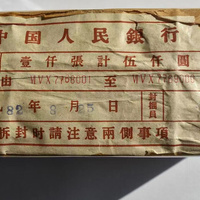 中国人民銀行
壹仟張計伍仟圓
由 MVX7798001 至 MVX7799000
82年9月25日 封籤員
拆封時請注意兩側事項